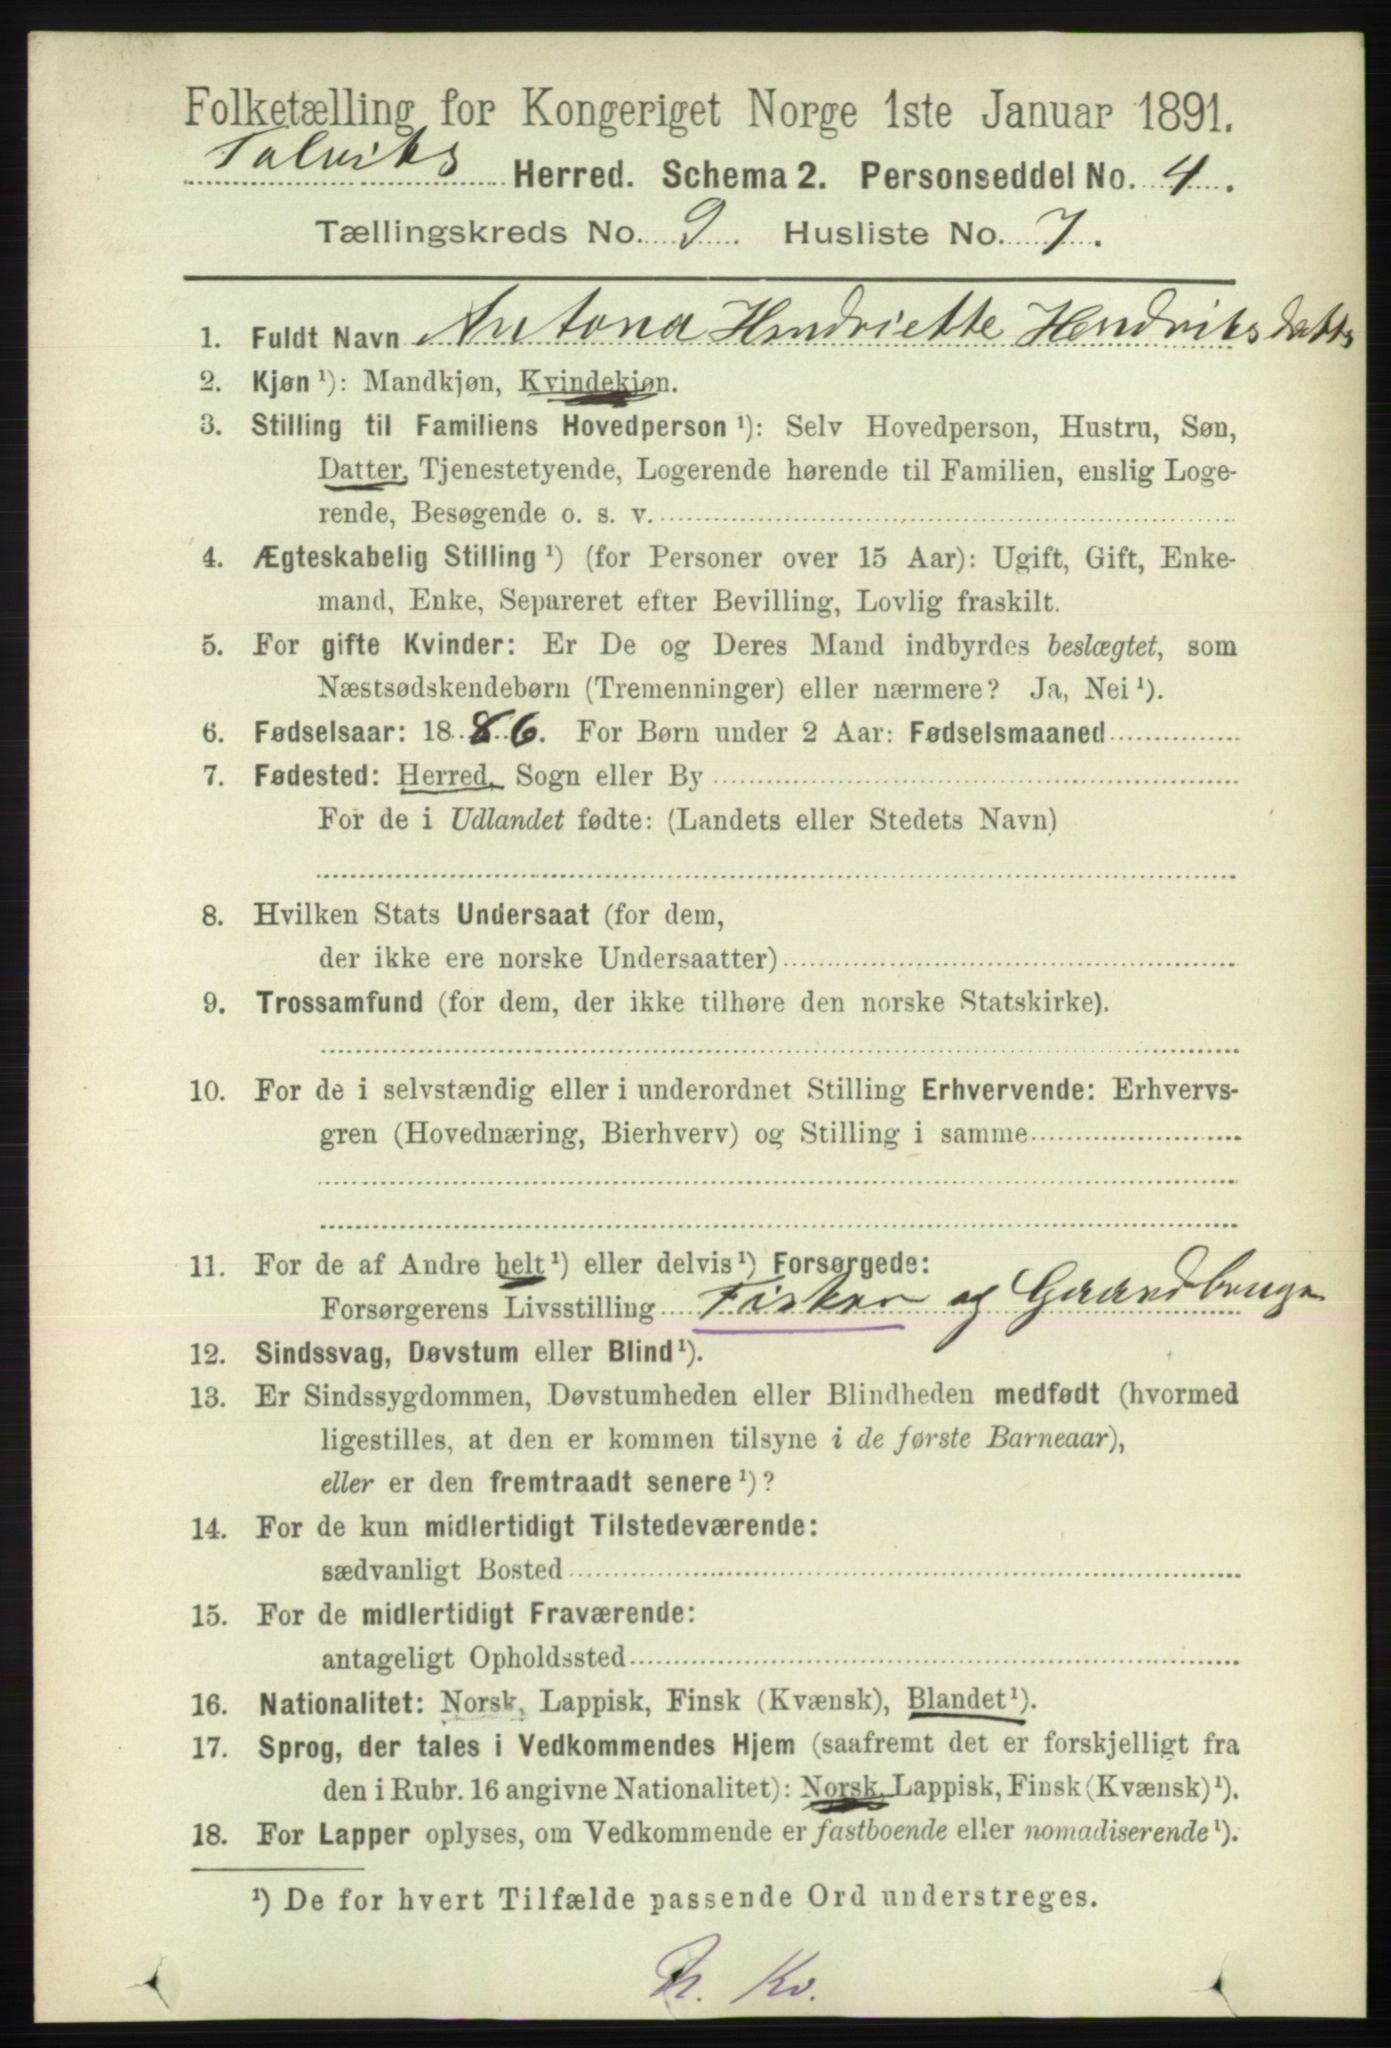 Folketælling for Kongeriget Norge 1ste Januar 1891.
Talviks Herred. Schema 2. Personseddel No. 4.
Tællingskreds No. 9. Husliste No. 7.
1. Fuldt Navn Antona Hendriette Hendriksdatter
2. Kjøn ¹): Mandkjøn, Kvindekjøn.
3. Stilling til Familiens Hovedperson ¹): Selv Hovedperson, Hustru, Søn,
Datter, Tjenestetyende, Logerende hørende til Familien, enslig Loge-
rende, Besøgende o. s. v.
4. Ægteskabelig Stilling ¹) (for Personer over 15 Aar): Ugift, Gift, Enke-
mand, Enke, Separeret efter Bevilling, Lovlig fraskilt.
5. For gifte Kvinder: Er De og Deres Mand indbyrdes beslægtet, som
Næstsødskendebørn (Tremenninger) eller nærmere? Ja, Nei ¹).
6. Fødselsaar: 1886. For Børn under 2 Aar: Fødselsmaaned
7. Fødested: Herred, Sogn eller By
For de i Udlandet fødte: (Landets eller Stedets Navn)
8. Hvilken Stats Undersaat (for dem,
der ikke ere norske Undersaatter)
9. Trossamfund (for dem, der ikke tilhøre den norske Statskirke).
10. For de i selvstændig eller i underordnet Stilling Erhvervende: Erhvervs-
gren (Hovednæring, Bierhverv) og Stilling i samme
11. For de af Andre helt ¹) eller delvis ¹) Forsørgede:
Forsørgerens Livsstilling Fisker og Gaardbruger
12. Sindssvag, Døvstum eller Blind ¹).
13. Er Sindssygdommen, Døvstumheden eller Blindheden medfødt (hvormed
ligestilles, at den er kommen tilsyne i de første Barneaar),
eller er den fremtraadt senere ¹)?
14. For de kun midlertidigt Tilstedeværende:
sædvanligt Bosted
15. For de midlertidigt Fraværende:
antageligt Opholdssted
16. Nationalitet: Norsk, Lappisk, Finsk (Kvænsk), Blandet ¹).
17. Sprog, der tales i Vedkommendes Hjem (saafremt det er forskjelligt fra
den i Rubr. 16 angivne Nationalitet): Norsk, Lappisk, Finsk (Kvænsk) ¹).
18. For Lapper oplyses, om Vedkommende er fastboende eller nomadiserende ¹).
¹) De for hvert Tilfælde passende Ord understreges.
N. Kv.